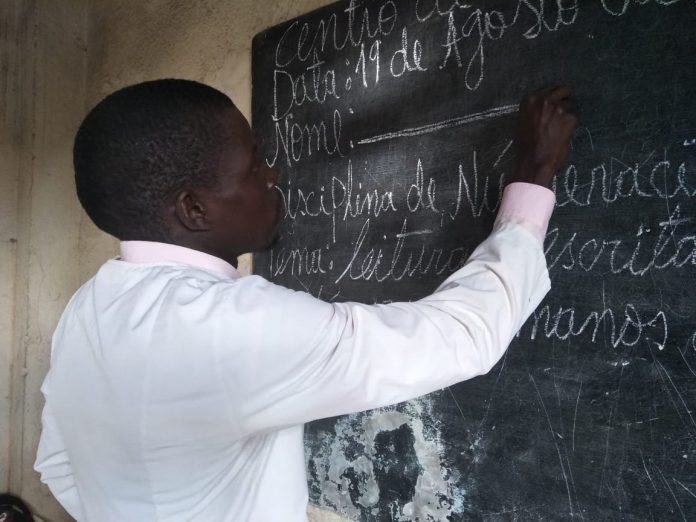 Centro de
Data: 19 de Agosto
Nome:
Disciplina de
Tema: leitura escrita
manos